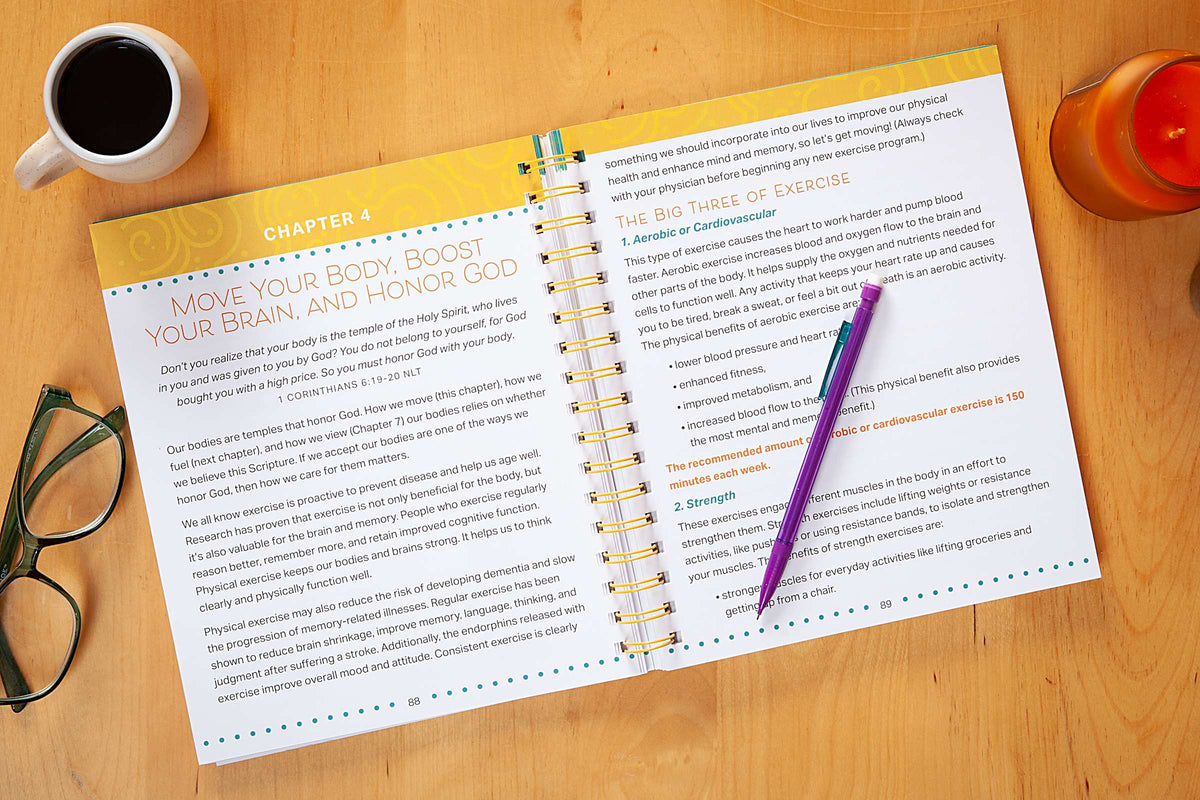 CHAPTER 4
MOVE YOUR BODY, BOOST
YOUR BRAIN, AND HONOR GOD
Don't you realize that your body is the temple of the Holy Spirit, who lives
in you and was given to you by God? You do not belong to yourself, for God
bought you with a high price. So you must honor God with your body.
1 CORINTHIANS 6:19-20 NLT
Our bodies are temples that honor God. How we move (this chapter), how we
fuel (next chapter), and how we view (Chapter 7) our bodies relies on whether
we believe this Scripture. If we accept our bodies are one of the ways we
honor God, then how we care for them matters.
We all know exercise is proactive to prevent disease and help us age well.
Research has proven that exercise is not only beneficial for the body, but
it's also valuable for the brain and memory. People who exercise regularly
reason better, remember more, and retain improved cognitive function.
Physical exercise keeps our bodies and brains strong. It helps us to think
clearly and physically function well.
Physical exercise may also reduce the risk of developing dementia and slow
the progression of memory-related illnesses. Regular exercise has been
shown to reduce brain shrinkage, improve memory, language, thinking, and
judgment after suffering a stroke. Additionally, the endorphins released with
exercise improve overall mood and attitude. Consistent exercise is clearly
88
something we should incorporate into our lives to improve our physical
health and enhance mind and memory, so let's get moving! (Always check
with your physician before beginning any new exercise program.)
THE BIG THREE OF EXERCISE
1. Aerobic or Cardiovascular
This type of exercise causes the heart to work harder and pump blood
faster. Aerobic exercise increases blood and oxygen flow to the brain and
other parts of the body. It helps supply the oxygen and nutrients needed for
cells to function well. Any activity that keeps your heart rate up and causes
you to be tired, break a sweat, or feel a bit out is an aerobic activity.
The physical benefits of aerobic exercise are
• lower blood pressure and heart
• enhanced fitness,
• improved metabolism, and
• increased blood flow to the (This physical benefit also provides
the most mental and benefit.)
The recommended amount or cardiovascular exercise is 150
minutes each week.
2. Strength
These exercises muscles in the body in an effort to
strengthen them. exercises include lifting weights or resistance
activities, like or using resistance bands, to isolate and strengthen
your muscles. benefits of strength exercises are:
• muscles for everyday activities like lifting groceries and
getting from a chair.
89